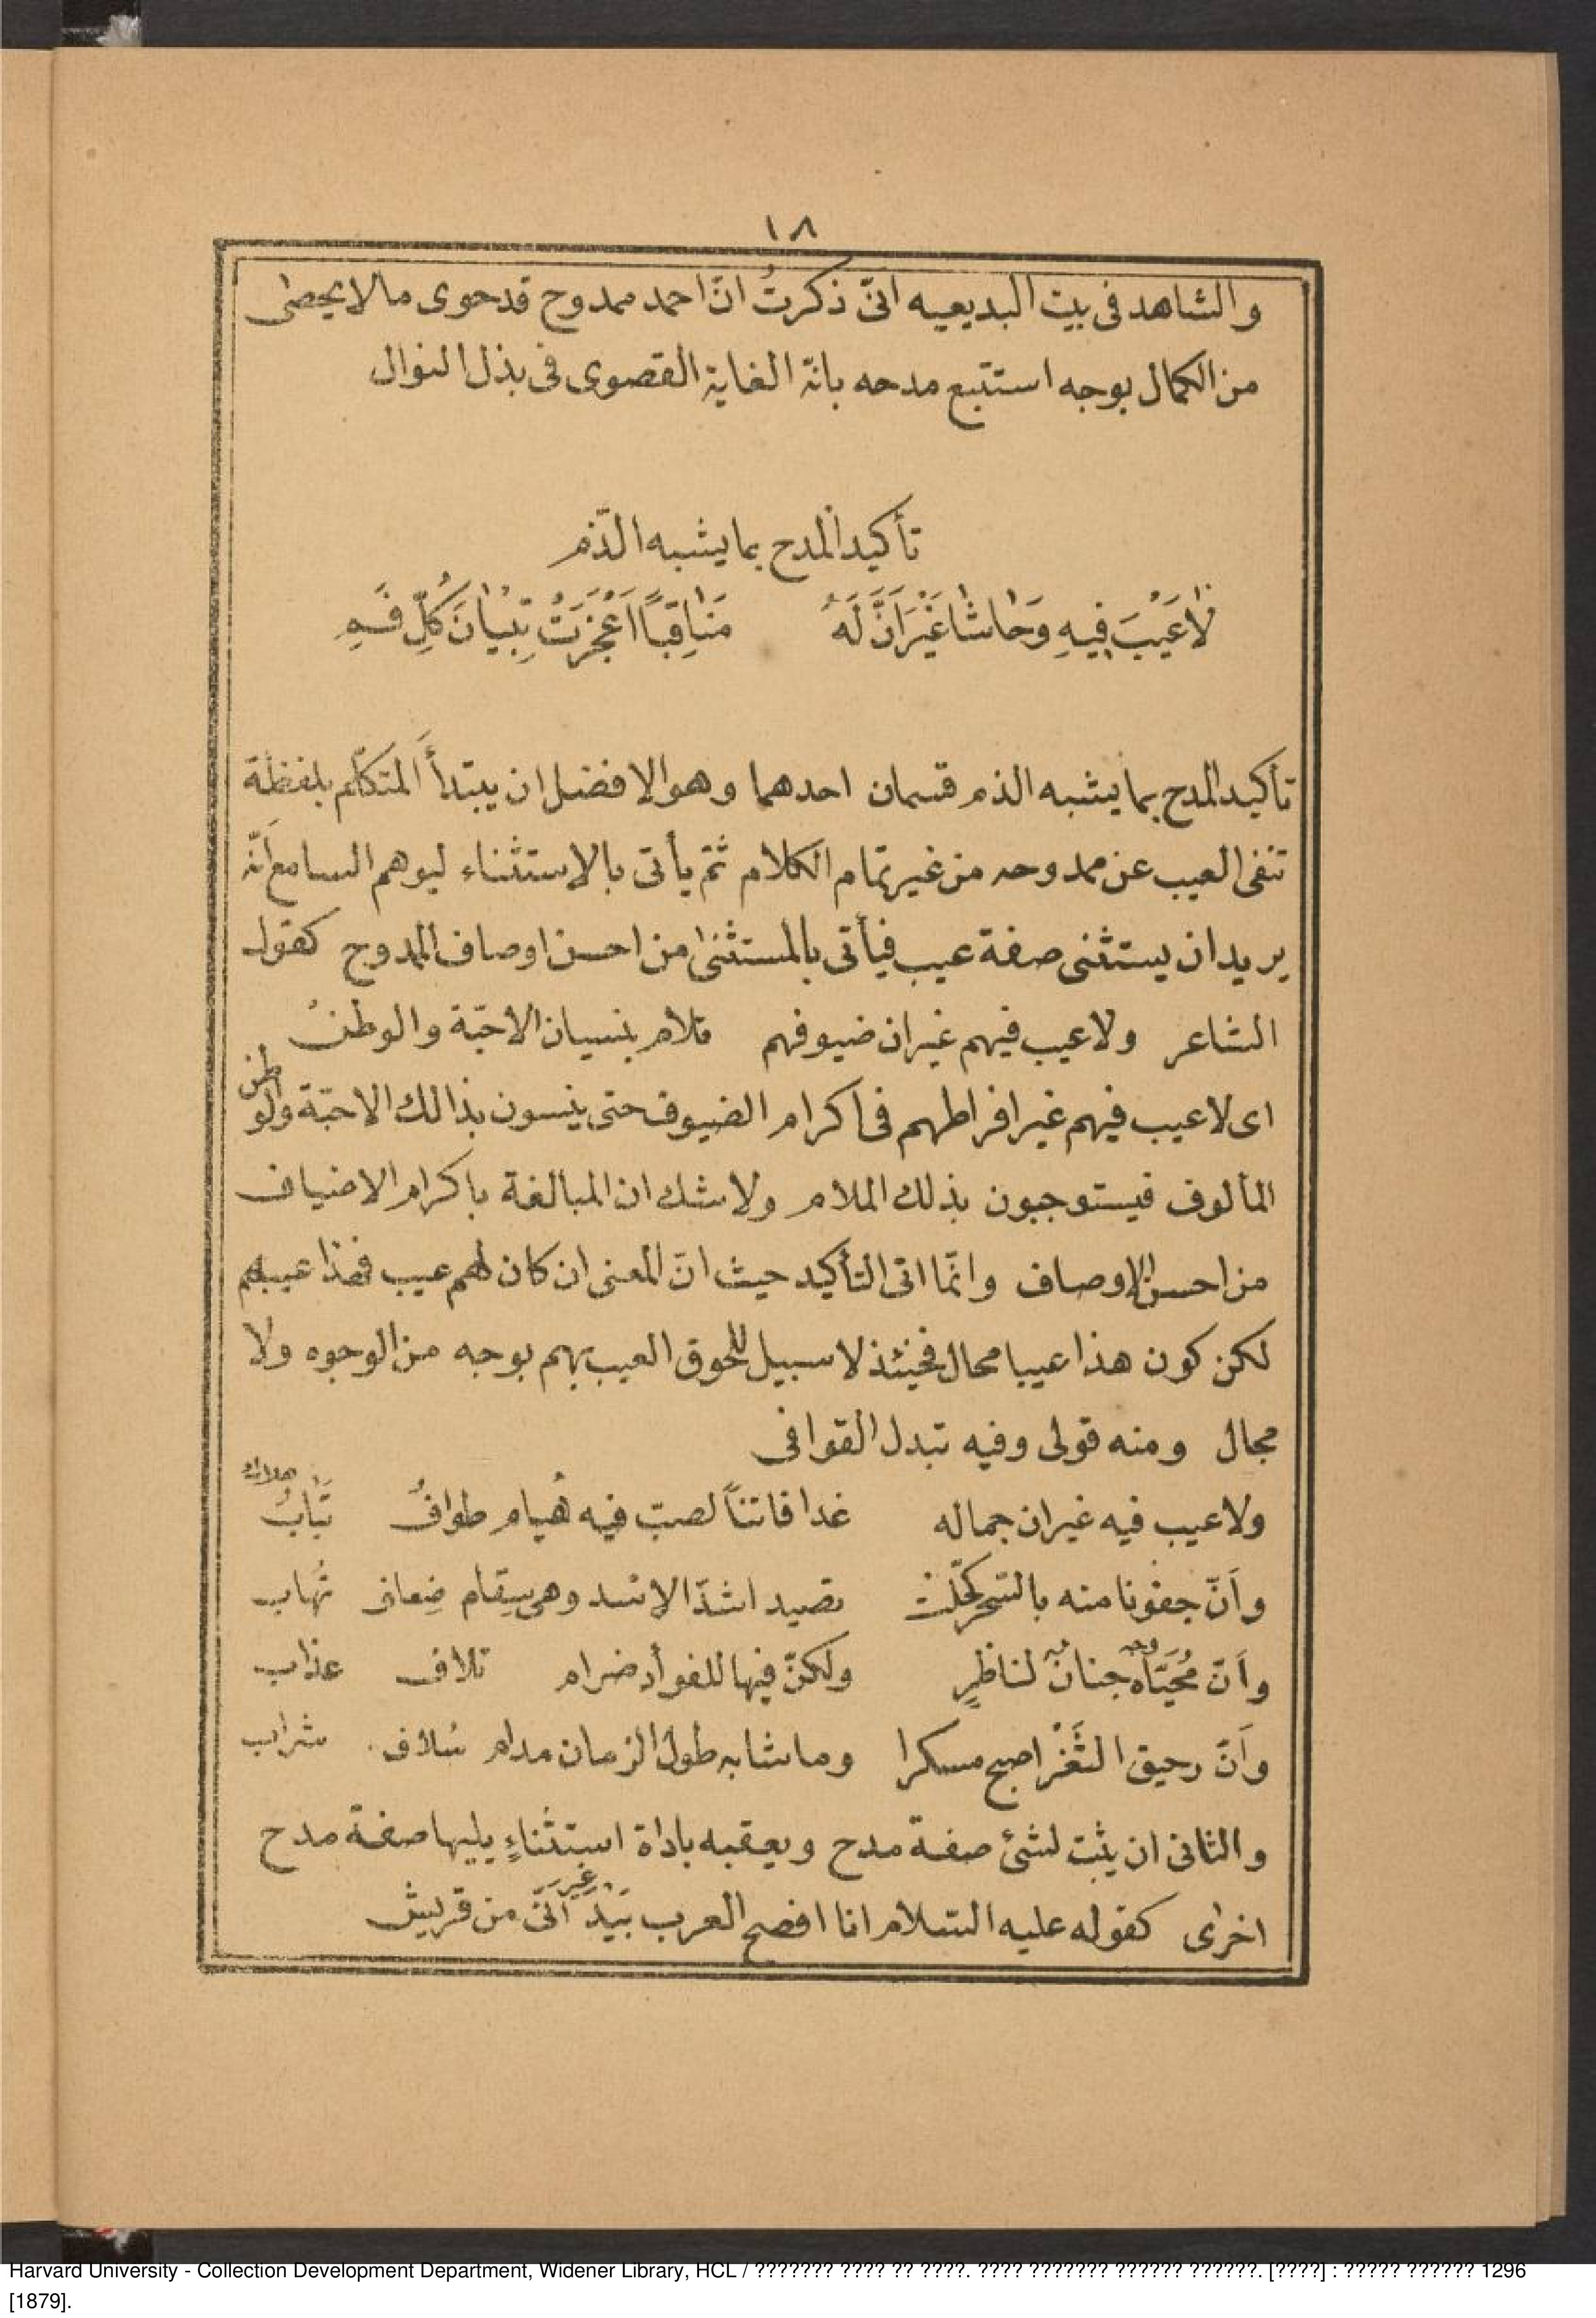 ١٨
والشاهد فى بيت البديعيه انىّ ذكرتُ انّ احمد ممدوح قد حوى ما لا يحصٰى
من الكمال بوجه استتبع مدحه بانّه الغاية القصوى فى بذل النوال
تأكيد المدح بما يشبه الذّم
لٰا عَيْبَ فِيهِ وَحٰاشٰا غَيْرَ اَنَّ لَهُ مَنٰاقِبًاً اَعْجَزَتْ تِبْيٰانَ كُلِّ فَمِ
تأكيد المدح بما يشبه الذم قسمان احدهما وهو الافضل ان يبتدأَ المتكلّم بلفظة
تنفى العيب عن ممدوحه من غير تمام الكلام ثمّ يأتى بالاستثناء ليوهم السامع اَنّه
يريد ان يستثنى صفة عيب فيأتى بالمستثنٰى من احسن اوصاف الممدوح كقول
الشاعر ولا عيب فيهم غير ان ضيوفهم تلام بنسيان الاحبّة والوطنْ
اى لا عيب فيهم غير افراطهم فى اكرام الضيوف حتى ينسون بذالك الاحبّة والوطن
المألوف فيستوجبون بذلك الملام ولا شك ان المبالغة باكرام الاضياف
من احسن الاوصاف وانّما اتى التأكيد حيث انّ المعنى ان كان لهم عيب فهذا عيبهم
لكن كون هذا عيبا محال فحينئذ لا سبيل للحوق العيب بهم بوجه من الوجوه ولا
مجال ومنه قولى وفيه تبدل القوافى
ولا عيب فيه غير ان جماله غدا فاتناً لصبّ فيه هُيام طوافُ تَبٰابُ هلاك
واَنّ جفونا منه بالسّحر كحّلت تصيد اشدّ الاسد وهى سِقام ضِعاف نُهاب
واَنّ مُحَيّاه وجه جنانٌ لناظرٍ ولكنّ فيها للفوأد ضرام تلاف عذاب
واَنّ رحيق الثَّغْر اصبح مسكرا وما شابه طول الزمان مدام سُلاف شراب
والثانى ان يثبت لشئ صفة مدح ويعقبه باداة استثناءٍ يليها صفة مدح
اخرٰى كقوله عليه السّلام انا افصح العرب بَيْدَ غير اَنّى من قريش
Harvard University - Collection Development Department, Widener Library, HCL / ??????? ???? ?? ????. ???? ??????? ?????? ??????. [????] : ????? ?????? 1296
[1879].